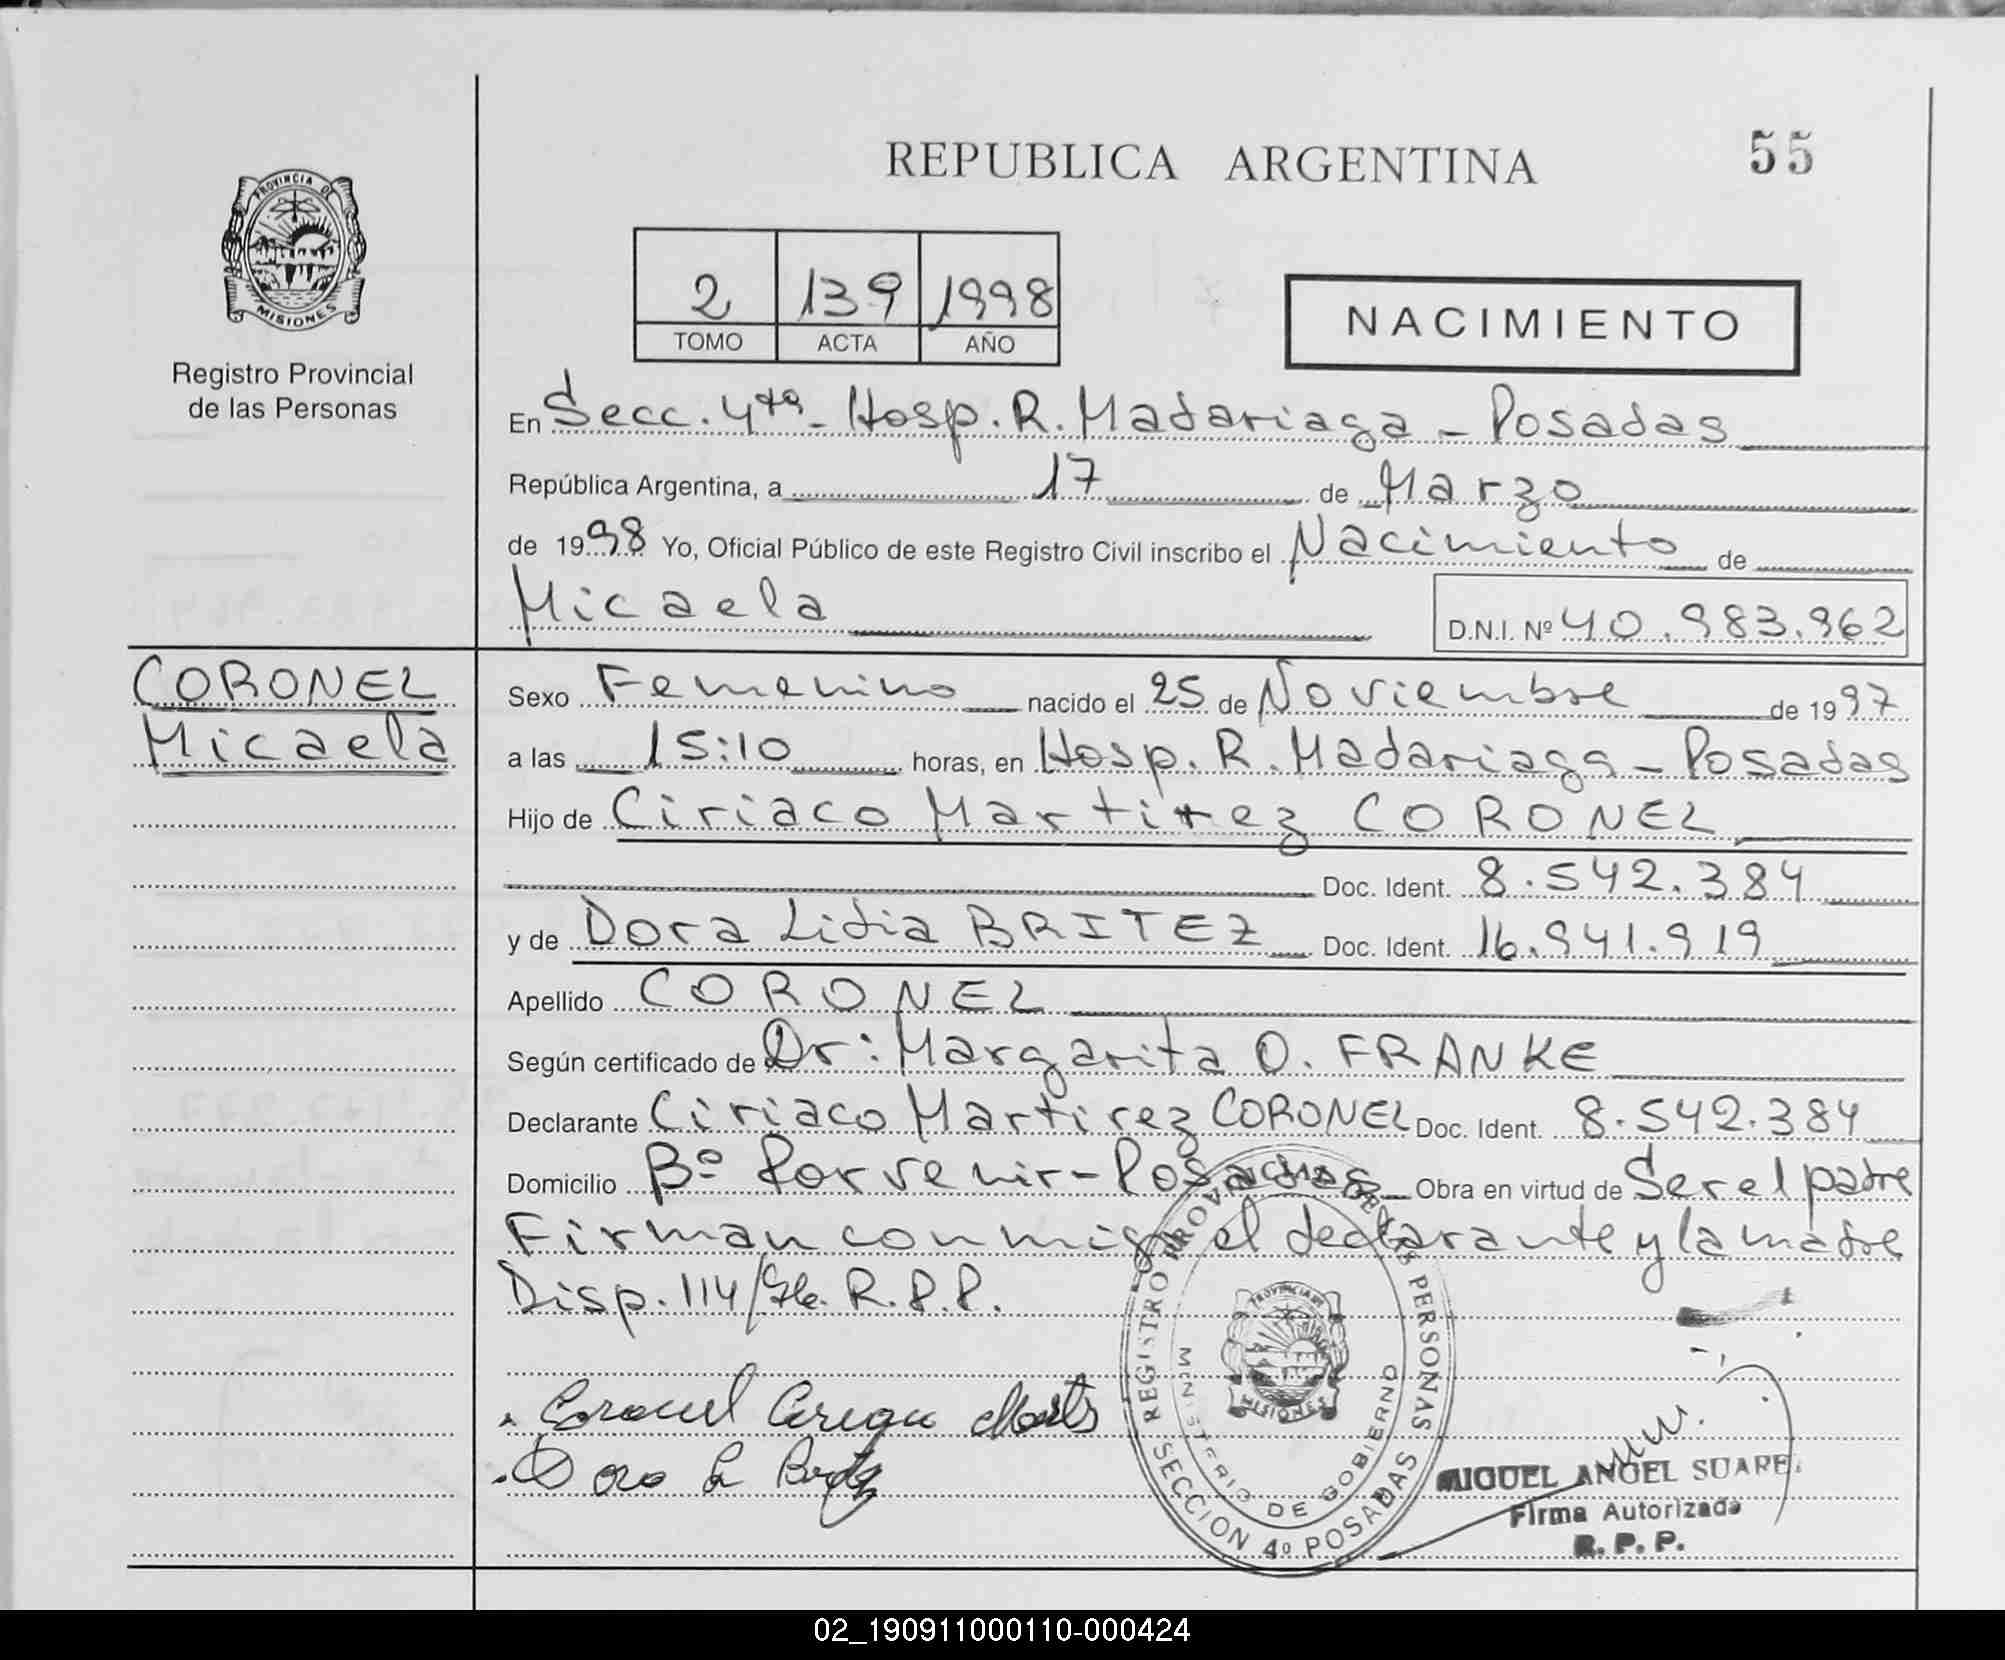 REPUBLICA ARGENTINA
55
PROVINCIA DE
MISIONES
Registro Provincial
de las Personas
2 139 1998
TOMO ACTA AÑO
NACIMIENTO
En Secc. 4ta - Hosp. R. Madariaga - Posadas
República Argentina, a 17 de Marzo
de 1998 Yo, Oficial Público de este Registro Civil inscribo el Nacimiento de
Micaela
D.N.I. Nº 40.983.962
CORONEL
Micaela
Sexo Femenino nacido el 25 de Noviembre de 1997
a las 15:10 horas, en Hosp. R. Madariaga - Posadas
Hijo de Ciriaco Martirez CORONEL
Doc. Ident. 8.542.384
y de Dora Lidia BRITEZ Doc. Ident. 16.941.919
Apellido CORONEL
Según certificado de Dr: Margarita O. FRANKE
Declarante Ciriaco Martirez CORONEL Doc. Ident. 8.542.384
Domicilio Bº Porvenir - Posadas Obra en virtud de Ser el padre
Firman conmigo el declarante y la madre
Disp. 114/96. R.P.P.
Coronel
Dora L
REGISTRO PROVINCIAL DE LAS PERSONAS
MINISTERIO DE GOBIERNO
PROVINCIA DE
MISIONES
SECCION 4º POSADAS
MIGUEL ANGEL SUAREZ
Firma Autorizada
R. P. P.
02_190911000110-000424